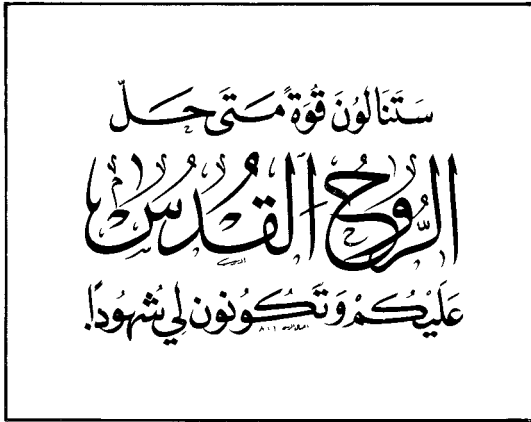 سَتَنَالُونَ قُوَّةً مَتَى حَلَّ
الرُّوحُ القُدُسُ
عَلَيْكُمْ وَتَكُونُونَ لِي شُهُودًا!